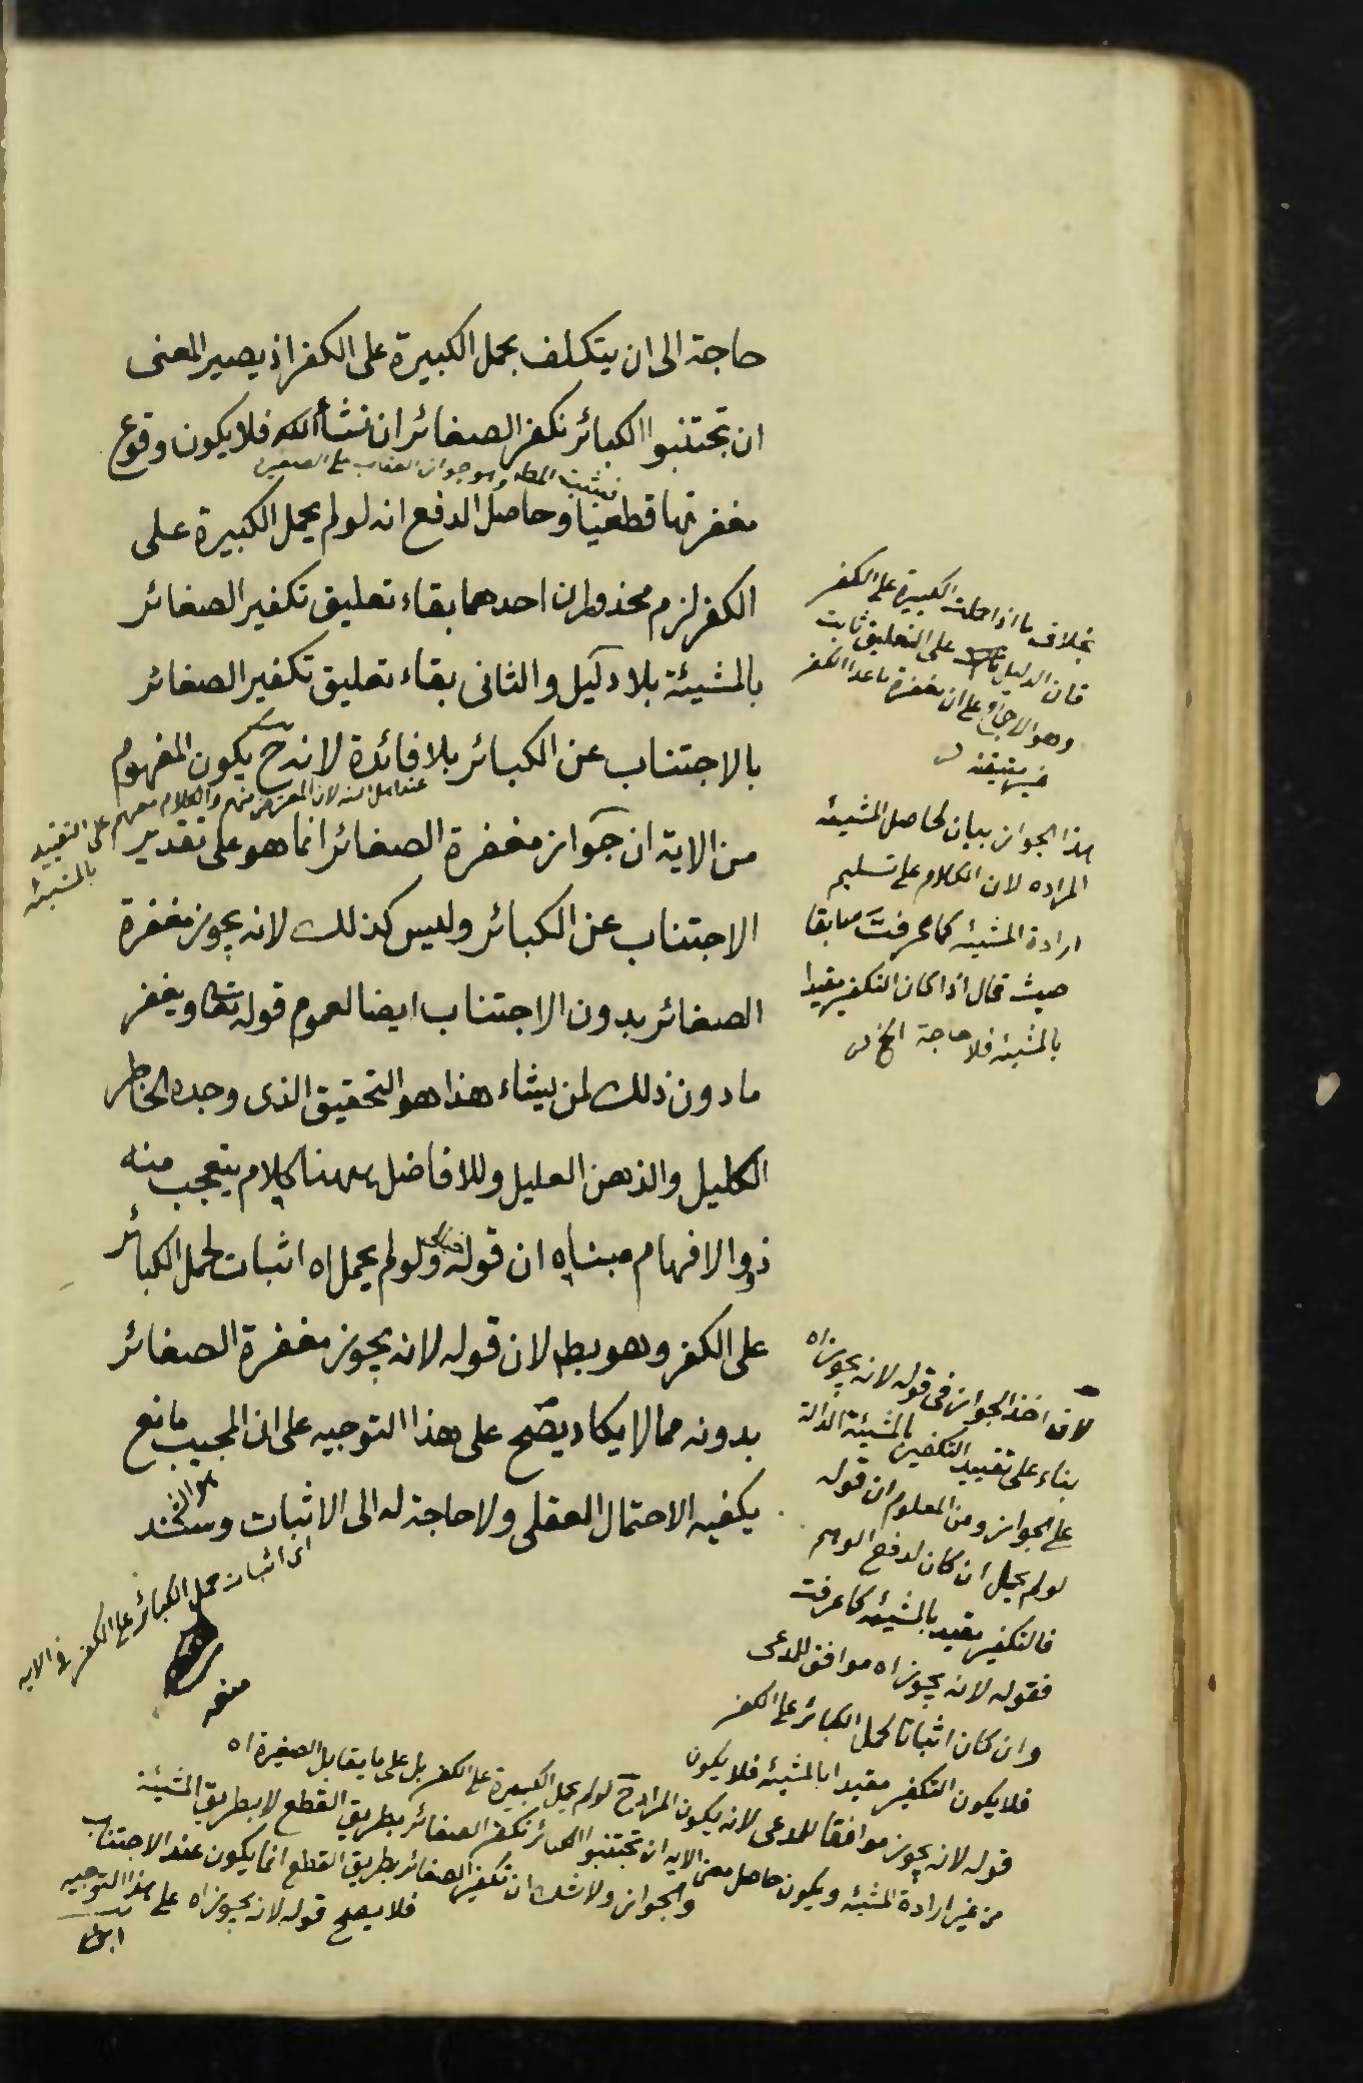 حاجة الى ان يتكلف بحمل الكبيرة على الكفر اذ يصير المعنى
ان تجتنبوا الكبائر نكفر الصغائر ان نشأ فلا يكون وقوع
مغفرتها قطعيا وحاصل الدفع انه لو لم يحمل الكبيرة على
الكفر لزم محذوران احدهما بقاء تعليق تكفير الصغائر
بالمشيئة بلا دليل والثانى بقاء تعليق تكفير الصغائر
بالاجتناب عن الكبائر بلا فائدة لانه ح يكون المفهوم
من الاية ان جواز مغفرة الصغائر انما هو على تقدير
الاجتناب عن الكبائر وليس كذلك لانه يجوز مغفرة
الصغائر بدون الاجتناب ايضا لعموم قوله تعا ويغفر
مادون ذلك لمن يشاء هذا هو التحقيق الذى وجده الخاطر
الكليل والذهن العليل وللافاضل ههنا كلام يتعجب منه
ذووا الافهام مبناه ان قوله ولو لم يحمل اه اثبات لحمل الكبائر
على الكفر وهو بط لان قوله لانه يجوز مغفرة الصغائر
بدونه مما لا يكاد يصح على هذا التوجيه على ان المجيب مانع
يكفيه الاحتمال العقلى ولا حاجة له الى الاثبات وسند
بخلاف ما اذا حملت الكبيرة على الكفر
فان الدليل على التعليق ثابت
وهو الاجماع على ان مغفرة ما عدا الكفر
هذا الجواز بيان لحاصل المشيئه
المراده لان الكلام على تسليم
ارادة المشيئه كما عرفت سابقا
حيث قال اذا كان التكفير مقيدا
بالمشيئه فلا حاجة الخ
على التقييد
بالمشيئه
لان اخذ الجواز فى قوله لانه يجوز اه
بناء على تقييد التكفير بالمشيئة الدالة
على الجواز ومن المعلوم ان قوله
لو لم يحمل ان كان لدفع الوهم
فالتكفير مقيد بالمشيئه كما عرفت
فقوله لانه يجوز اه موافق للمدعى
وان كان اثباتا لحمل الكبائر على الكفر
فلا يكون التكفير مقيدا بالمشيئه فلا يكون
قوله لانه يجوز موافقا للمدعى لانه يكون المراد ح لو لم يحمل الكبيرة على الكفر بل على ما يقابل الصغيرة اه
من غير ارادة المشيئه ويكون حاصل معنى الايه ان تجتنبوا الكبائر نكفر الصغائر بطريق القطع لا بطريق المشيئة
والجواز ولا شك ان تكفير الصغائر بطريق القطع انما يكون عند الاجتناب
فلا يصح قوله لانه يجوز اه على هذا التوجيه
اى اثبات حمل الكبائر على الكفر فى الايه
منه